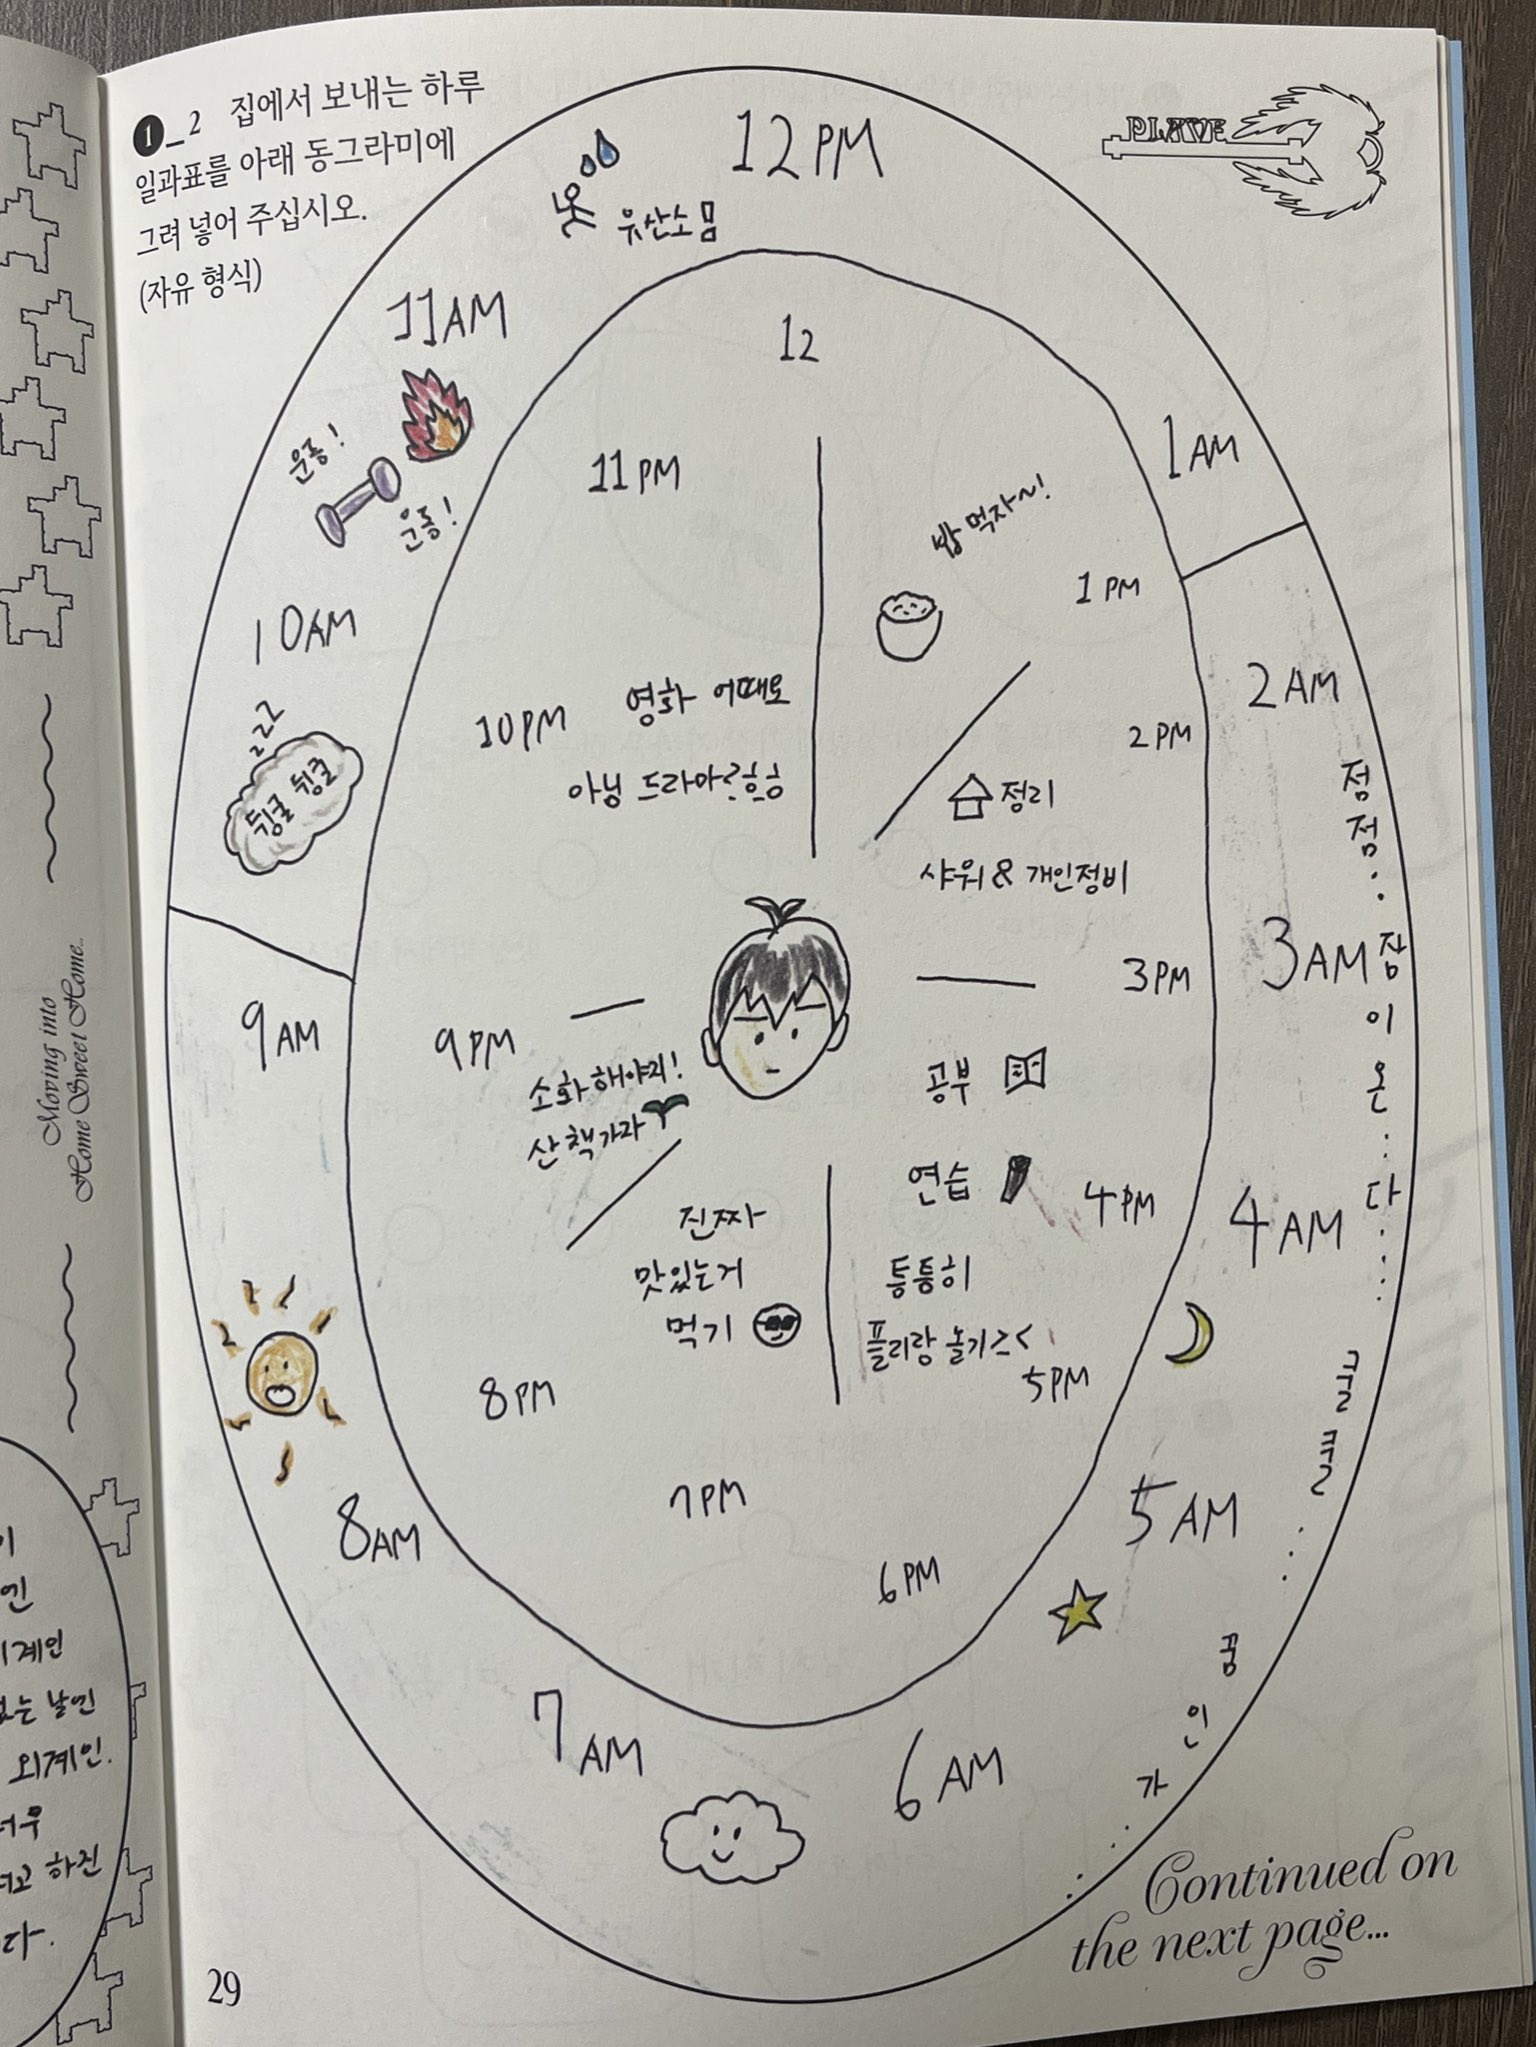 ❶_2 집에서 보내는 하루
일과표를 아래 동그라미에
그려 넣어 주십시오.
(자유 형식)
PLAVE
12PM
유산소 몸
11AM
운동!
운동!
10AM
zzz
뒹굴 뒹굴
9AM
8AM
7AM
6AM
5AM
4AM
3AM
2AM
1AM
점
점..
잠
이
온...
다....
쿨쿨...
꿈
인
가....
12
11PM
밥 먹자~!
1PM
10PM
영화 어때요
아님 드라마? 흐흐
2PM
정리
샤워 & 개인정비
3PM
9PM
소화해야지!
산책가라
공부
연습
4PM
진짜
맛있는거
먹기
틈틈히
플리랑 놀기><
5PM
8PM
7PM
6PM
Moving into
Home Sweet Home...
계인
없는 날엔
외계인.
너우
하진
다.
Continued on
the next page...
29